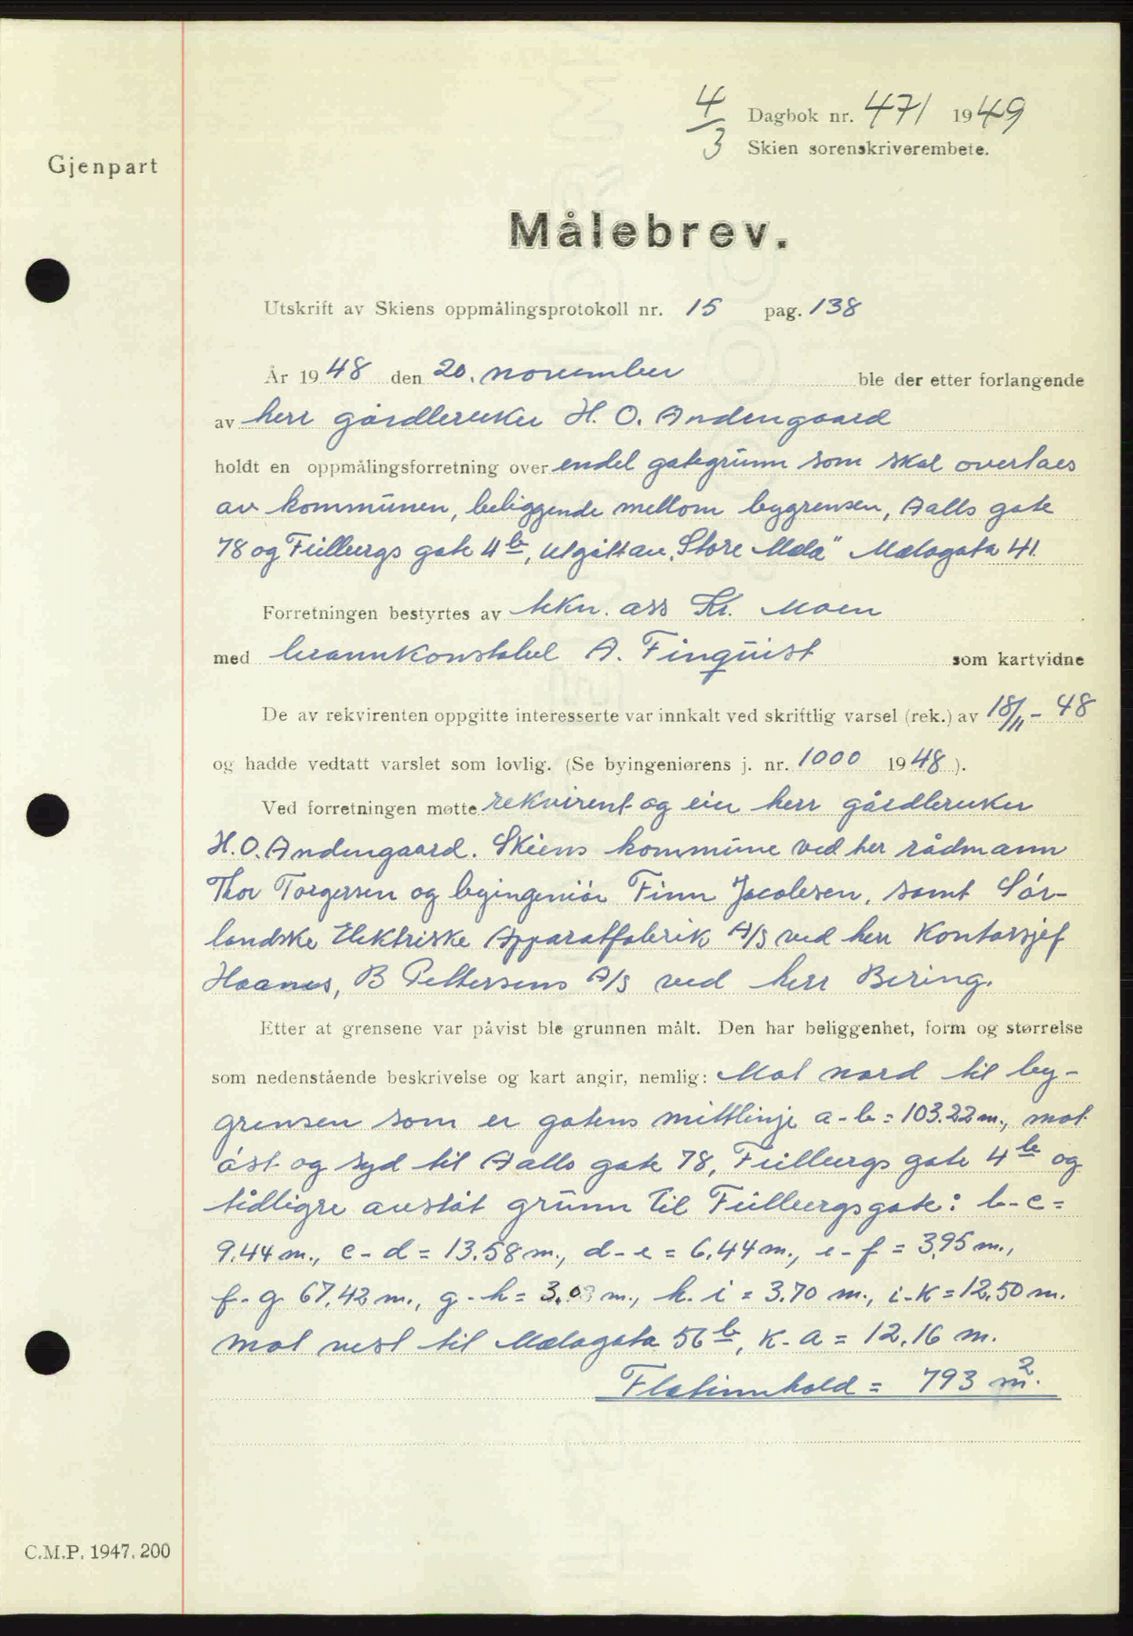 4/3 Dagbok nr. 471 1949
Skien sorenskriverembete.
Gjenpart
Målebrev.
Utskrift av Skiens oppmålingsprotokoll nr. 15 pag. 138
År 1948 den 20. november ble der etter forlangende
av herr gårdbruker H. O. Andengaard
holdt en oppmålingsforretning over endel gategrunn som skal overtaes
av kommunen, beliggende mellom bygrensen, Aalls gate
78 og Füllbergs gate 4b, utgått av "Store Mæla" Mælagata 41.
Forretningen bestyrtes av tekn. ass Kr. Moen
med brannkonstabel A. Finquist som kartvidne
De av rekvirenten oppgitte interesserte var innkalt ved skriftlig varsel (rek.) av 18/11 - 48
og hadde vedtatt varslet som lovlig. (Se byingeniørens j. nr. 1000 1948).
Ved forretningen møtte rekvirent og eier herr gårdbruker
H. O. Andengaard. Skiens kommune ved her rådmann
Thor Torgersen og byingeniør Finn Jacobsen, samt Sør-
landske Elektriske Apparatfabrik A/S ved herr Kontorsjef
Haanes, B Pettersens A/S ved herr Bering.
Etter at grensene var påvist ble grunnen målt. Den har beliggenhet, form og størrelse
som nedenstående beskrivelse og kart angir, nemlig: Mot nord til by-
grensen som er gatens mittlinje a-b = 103.22 m., mot
øst og syd til Aalls gate 78, Füllbergs gate 4b og
tidligre avstått grunn til Füllbergsgate: b-c =
9.44 m., c-d = 13.58 m., d-e = 6.44 m., e-f = 3.95 m.,
f-g 67.42 m., g-h = 3.03 m., h-i = 3.70 m., i-k = 12.50 m.
mot vest til Mælagata 56b, k-a = 12.16 m.
Flatinnhold = 793 m².
C.M.P. 1947. 200